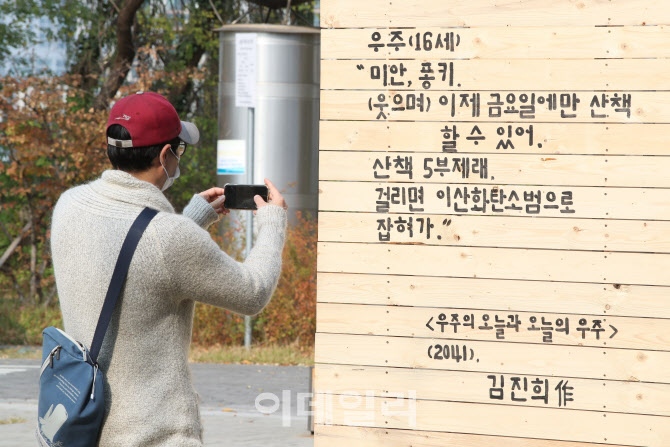 우주(16세)
"미안, 퐁키.
(웃으며) 이제 금요일에만 산책
할 수 있어.
산책 5부제래.
걸리면 이산화탄소범으로
잡혀가."
<우주의 오늘과 오늘의 우주>
(2041).
김진희 作
이데일리